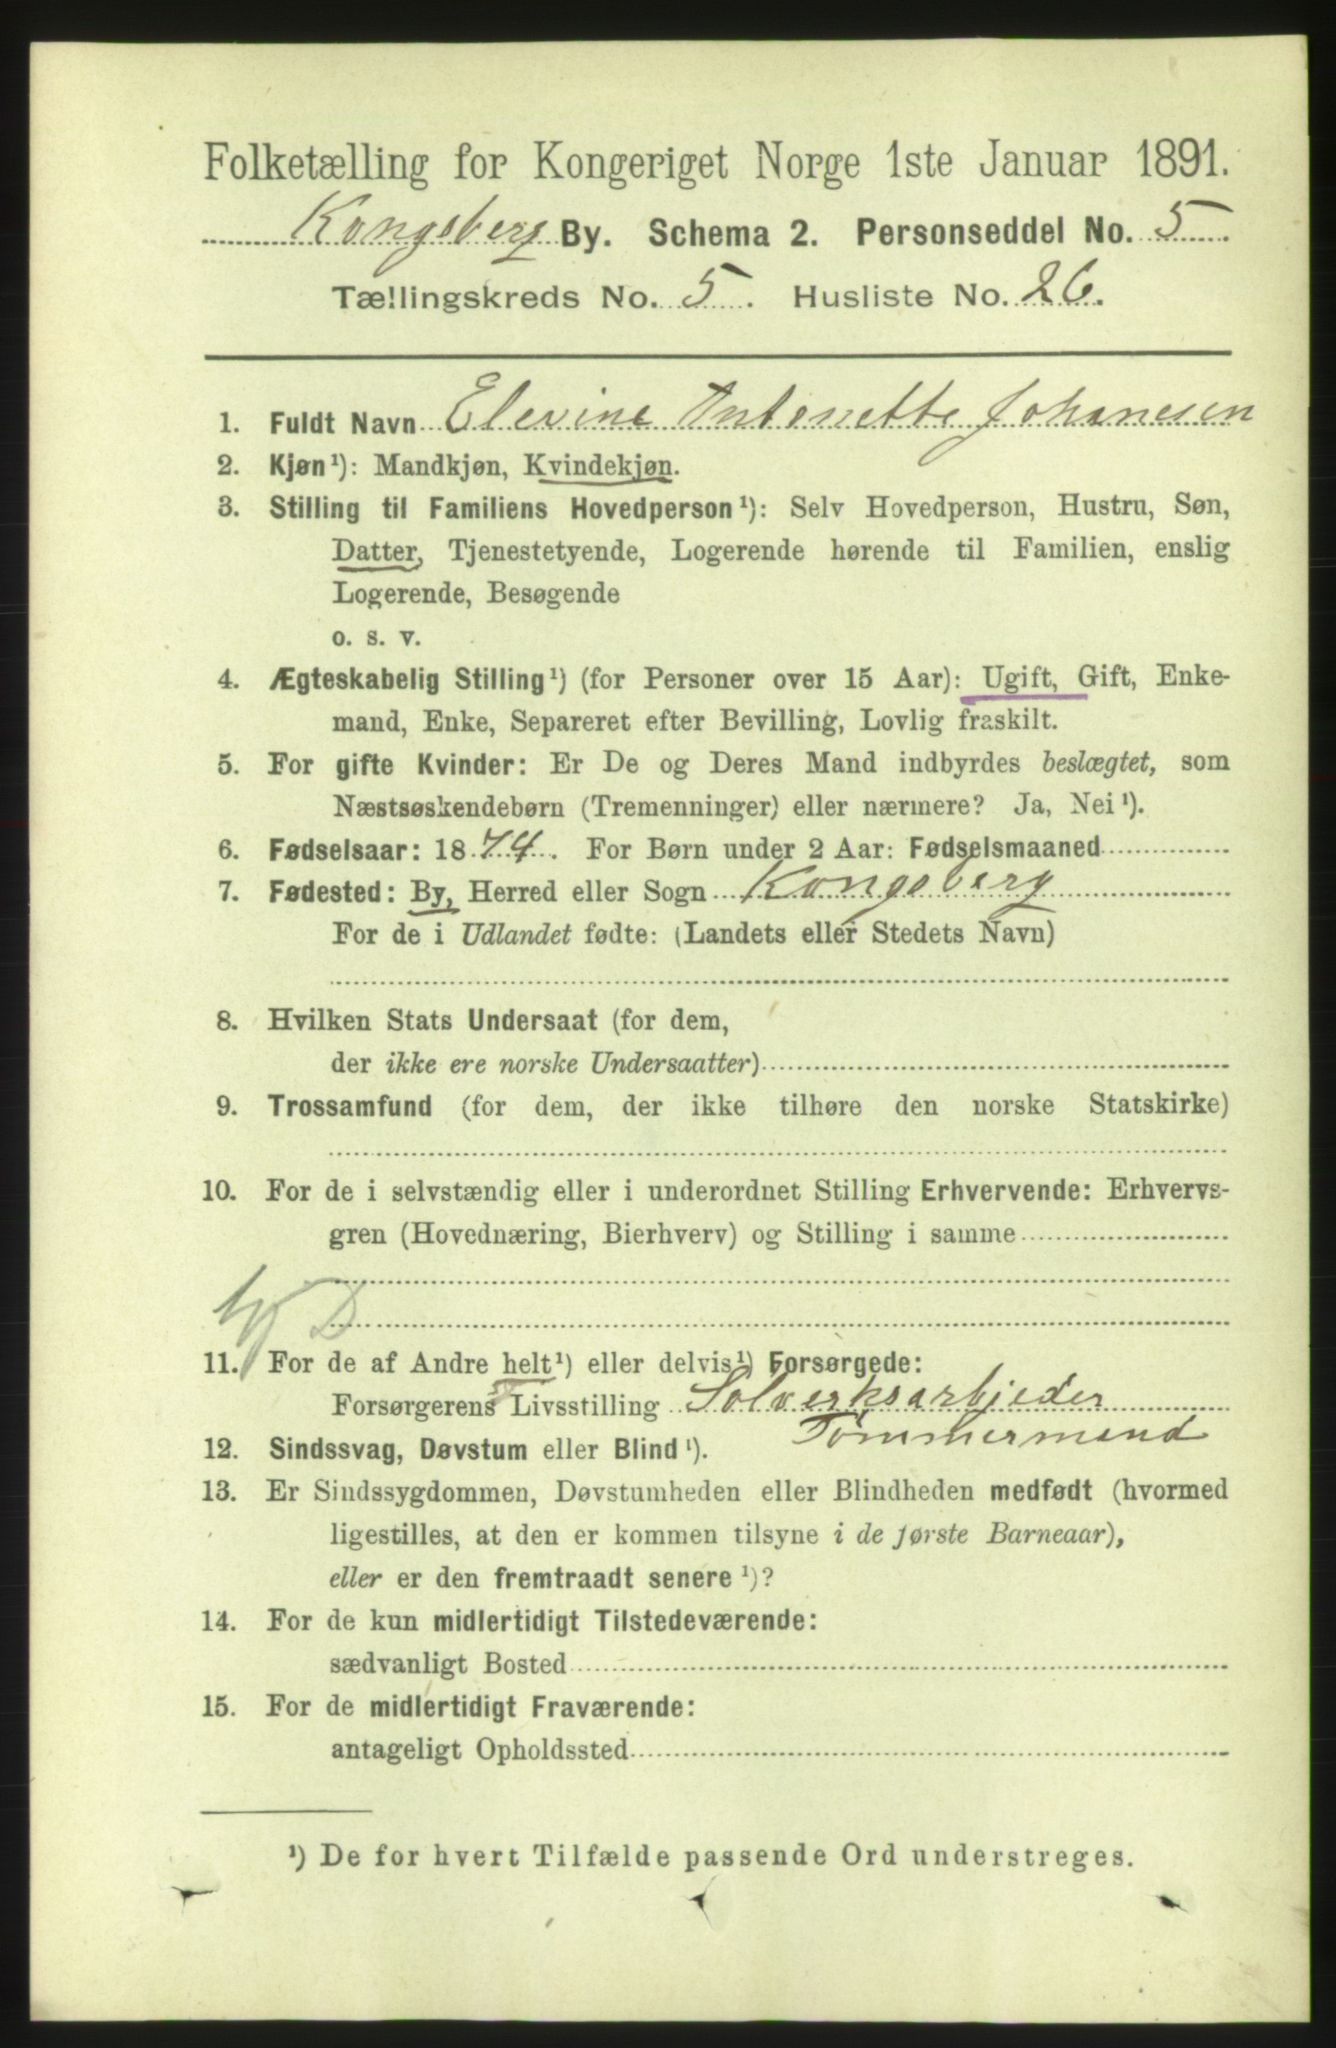 Folketælling for Kongeriget Norge 1ste Januar 1891.
Kongsberg By. Schema 2. Personseddel No. 5.
Tællingskreds No. 5. Husliste No. 26.
1. Fuldt Navn Elevine Antonette Johanesen
2. Kjøn¹): Mandkjøn, Kvindekjøn.
3. Stilling til Familiens Hovedperson¹): Selv Hovedperson, Hustru, Søn,
Datter, Tjenestetyende, Logerende hørende til Familien, enslig
Logerende, Besøgende
o. s. v.
4. Ægteskabelig Stilling¹) (for Personer over 15 Aar): Ugift, Gift, Enke-
mand, Enke, Separeret efter Bevilling, Lovlig fraskilt.
5. For gifte Kvinder: Er De og Deres Mand indbyrdes beslægtet, som
Næstsøskendebørn (Tremenninger) eller nærmere? Ja, Nei¹).
6. Fødselsaar: 1874. For Børn under 2 Aar: Fødselsmaaned
7. Fødested: By, Herred eller Sogn Kongsberg
For de i Udlandet fødte: (Landets eller Stedets Navn)
8. Hvilken Stats Undersaat (for dem,
der ikke ere norske Undersaatter)
9. Trossamfund (for dem, der ikke tilhøre den norske Statskirke)
10. For de i selvstændig eller i underordnet Stilling Erhvervende: Erhvervs-
gren (Hovednæring, Bierhverv) og Stilling i samme
D
11. For de af Andre helt¹) eller delvis¹) Forsørgede:
Forsørgerens Livsstilling Solverksarbjeder
Tømmermand
12. Sindssvag, Døvstum eller Blind¹).
13. Er Sindssygdommen, Døvstumheden eller Blindheden medfødt (hvormed
ligestilles, at den er kommen tilsyne i de første Barneaar),
eller er den fremtraadt senere¹)?
14. For de kun midlertidigt Tilstedeværende:
sædvanligt Bosted
15. For de midlertidigt Fraværende:
antageligt Opholdssted
¹) De for hvert Tilfælde passende Ord understreges.